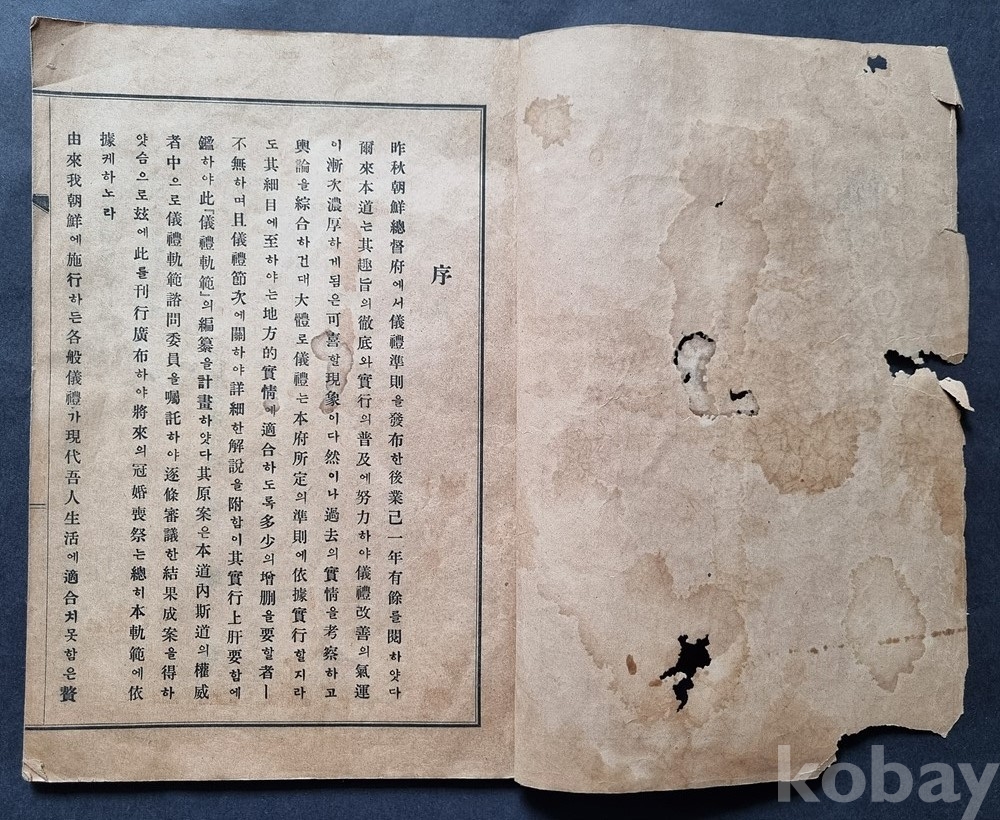 序
昨秋朝鮮總督府에서儀禮準則을發布한後業己一年有餘를閱하얏다
爾來本道는其趣旨의徹底와實行의普及에努力하야儀禮改善의氣運
이漸次濃厚하게됨은可喜할現象이다然이나過去의實情을考察하고
輿論을綜合하건대大體로儀禮는本府所定의準則에依據實行할지라
도其細目에至하야는地方的實情에適合하도록多少의增删을要할者ㅣ
不無하며且儀禮節次에關하야詳細한解說을附함이其實行上肝要함에
鑑하야此「儀禮軌範」의編纂을計畫하얏다其原案은本道內斯道의權威
者中으로儀禮軌範諮問委員을囑託하야逐條審議한結果成案을得하
얏슴으로玆에此를刊行廣布하야將來의冠婚喪祭는總히本軌範에依
據케하노라
由來我朝鮮에施行하든各般儀禮가現代吾人生活에適合치못함은贅
kobay